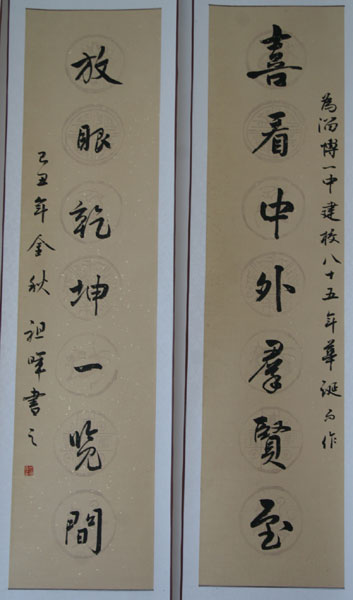 為淄博一中建校八十五年華誕而作
喜看中外羣賢至
放眼乾坤一覽間
己丑年金秋祖暉書之